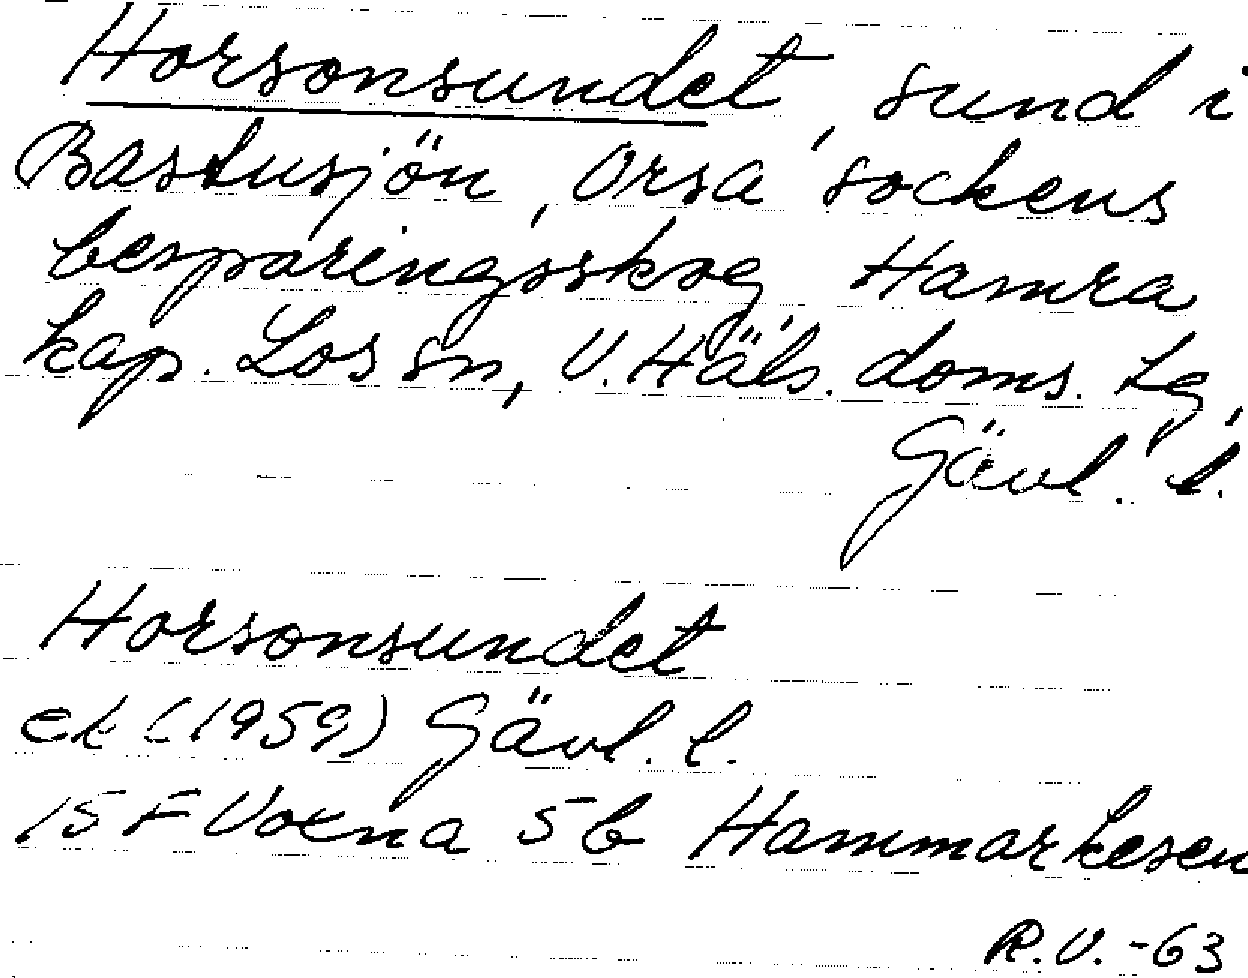 Horsonsundet, sund i
Bastusjön, Orsa sockens
besparingsskog, Hamra
kap. Los sn, V. Häls. doms. tg,
Gävl. l.
Horsonsundet
ek (1959) Gävl. l.
15 F Voxna 5b Hammarkesen
R.V. -63